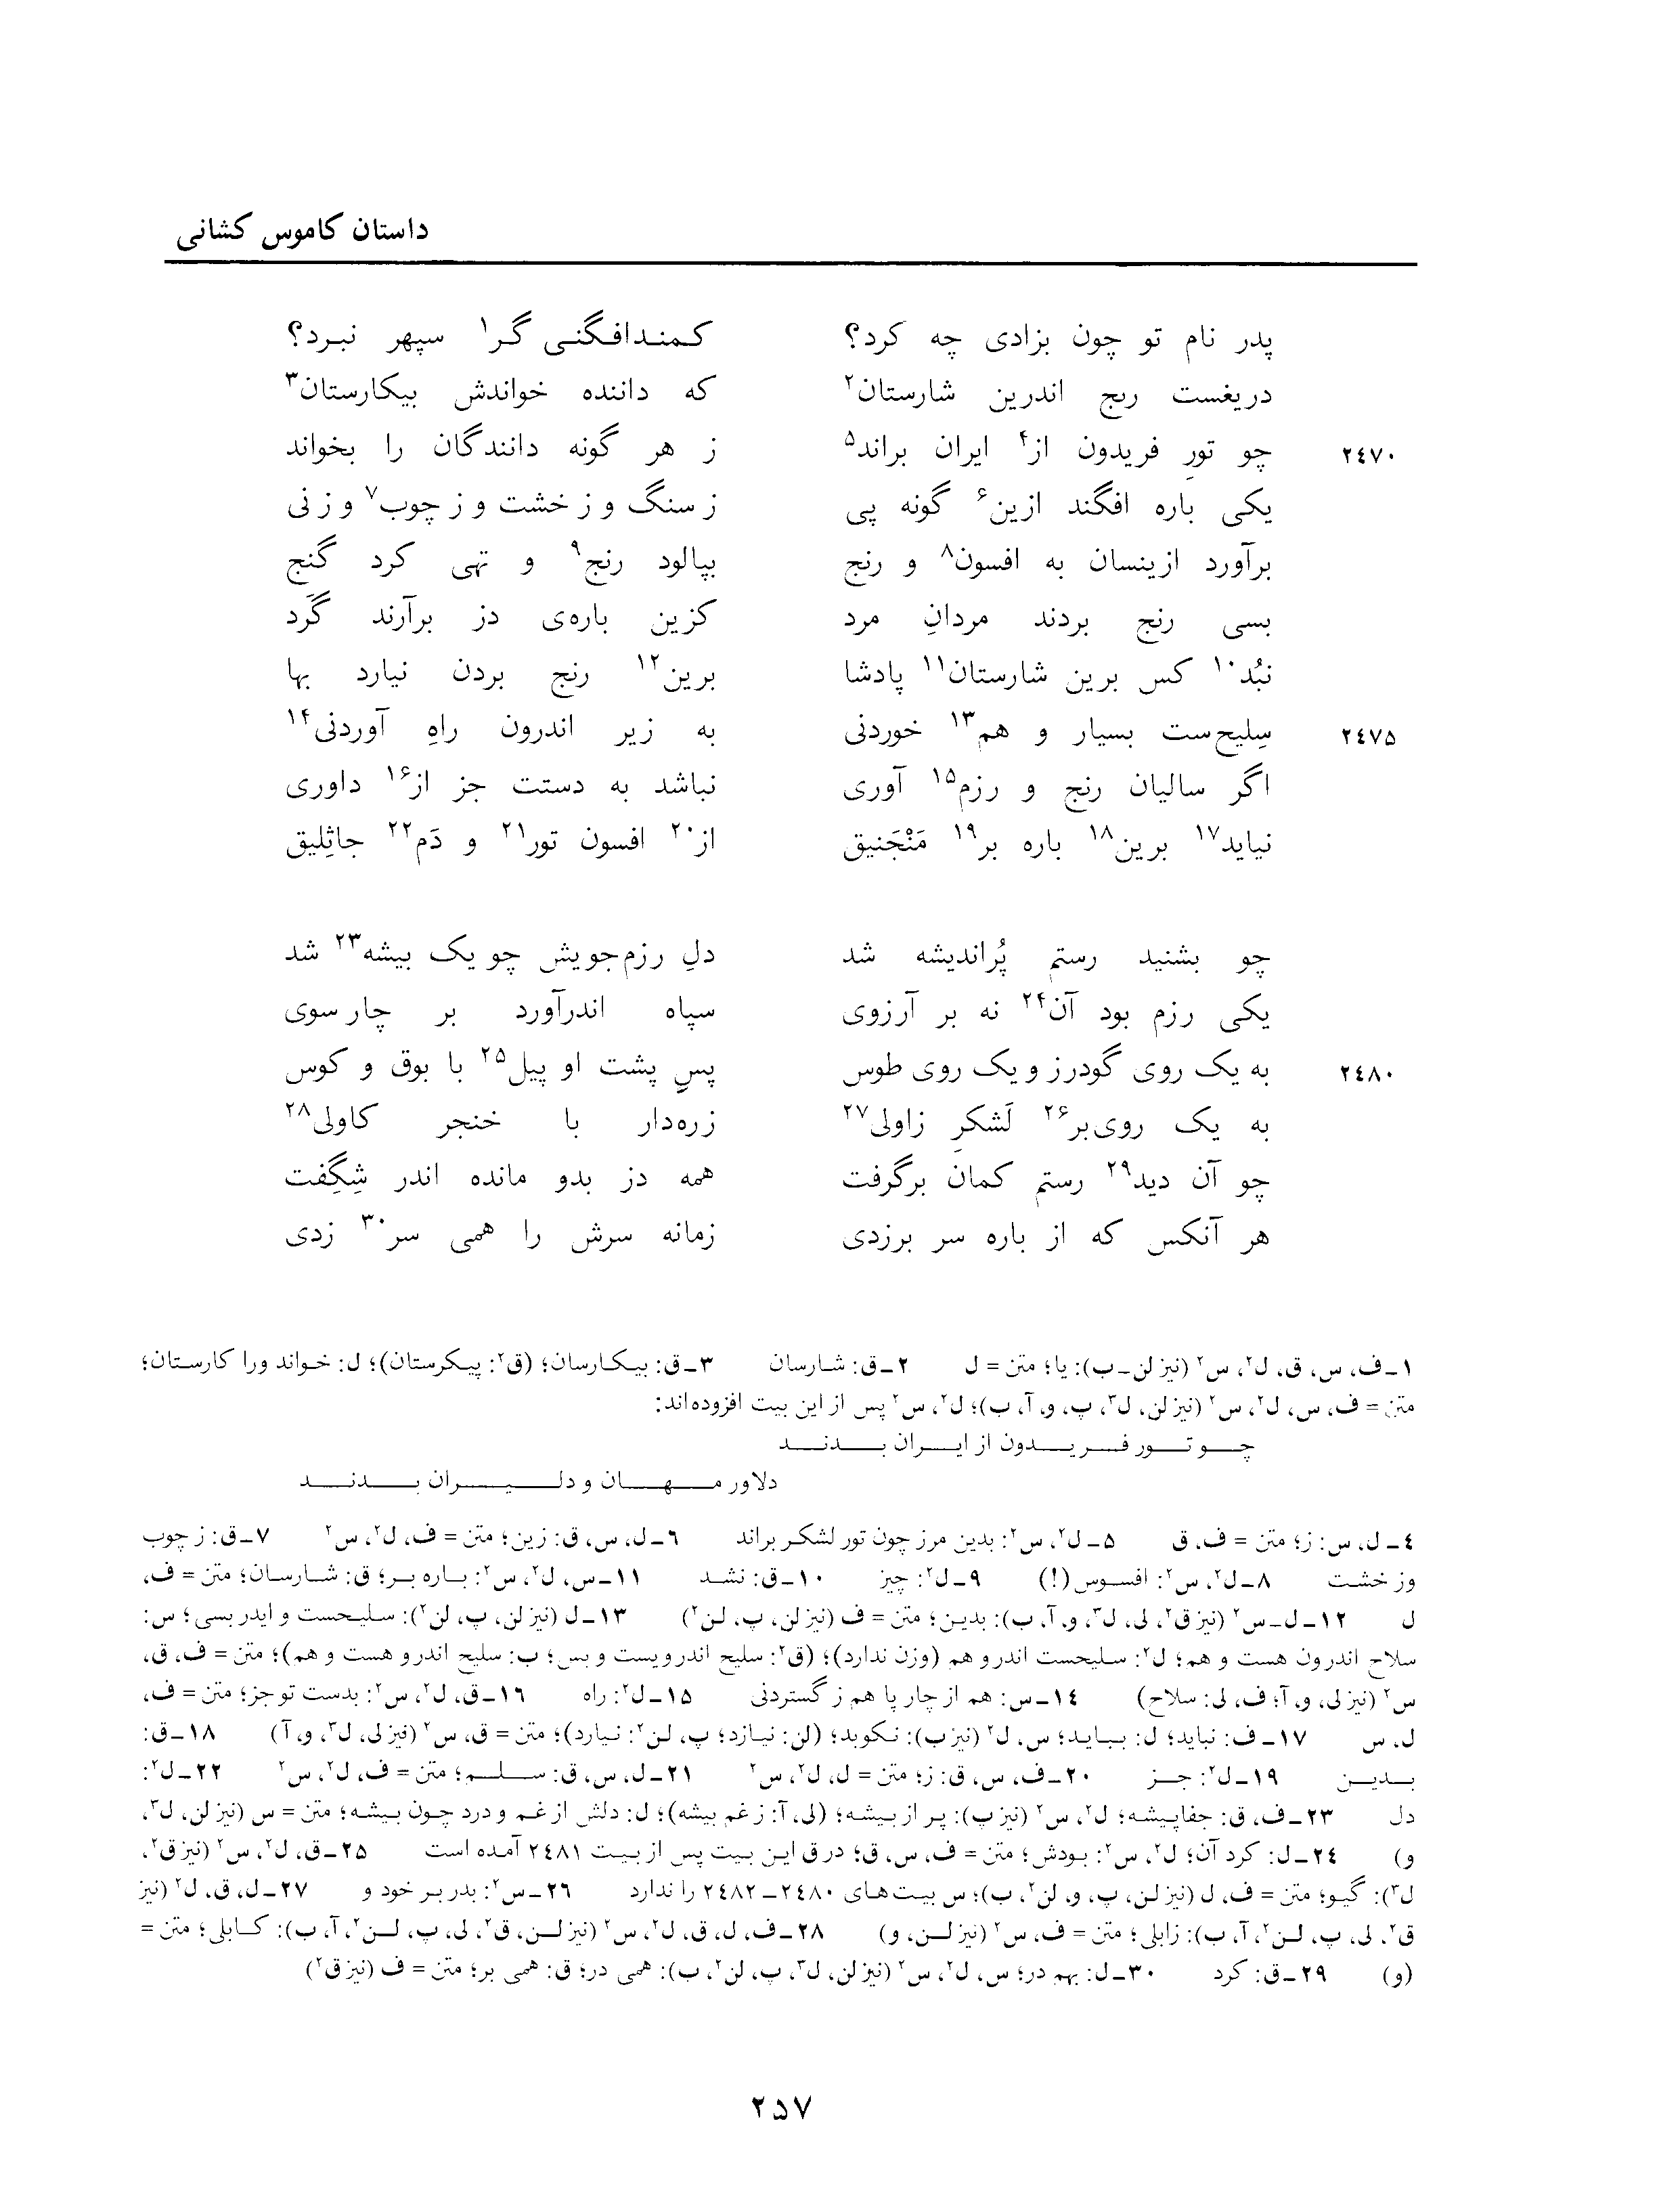 داستان کاموس کشانی
پدر نام تو چون بزادی چه کرد؟ کمندافگنی گر۱ سپهر نبرد؟
دریغست رنج اندرین شارستان۲ که داننده خواندش بیکارستان۳
۲٤۷۰ چو تورِ فریدون از۴ ایران براند۵ ز هر گونه دانندگان را بخواند
یکی باره افگند ازین۶ گونه پی ز سنگ و ز خشت و ز چوب۷ و ز نی
برآورد ازینسان به افسون۸ و رنج بپالود رنج۹ و تهی کرد گنج
بسی رنج بردند مردانِ مرد کزین باره‌ی دز برآرند گَرد
نبُد۱۰ کس برین شارستان۱۱ پادشا برین۱۲ رنج بردن نیارد بها
۲٤۷۵ سِلیح‌ست بسیار و هم۱۳ خوردنی به زیر اندرون راهِ آوردنی۱۴
اگر سالیان رنج و رزم۱۵ آوری نباشد به دستت جز از۱۶ داوری
نیاید۱۷ برین۱۸ باره بر۱۹ مَنْجَنیق از۲۰ افسون تور۲۱ و دَم۲۲ جاثِلیق
چو بشنید رستم پُراندیشه شد دلِ رزم‌جویش چو یک بیشه۲۳ شد
یکی رزم بود آن۲۴ نه بر آرزوی سپاه اندرآورد بر چار سوی
۲٤۸۰ به یک روی گودرز و یک روی طوس پسِ پشت او پیل۲۵ با بوق و کوس
به یک روی‌بر۲۶ لَشکرِ زاولی۲۷ زره‌دار با خنجر کاولی۲۸
چو آن دید۲۹ رستم کمان برگرفت همه دز بدو مانده اندر شِگِفت
هر آنکس که از باره سر برزدی زمانه سرش را همی سر۳۰ زدی
۱ـ ف، س، ق، ل۲، س۲ (نیز لن ـ ب): یا؛ متن = ل ۲ـ ق: شارسان ۳ـ ق: بیکارسان؛ (ق۲: پیکرستان)؛ ل: خواند ورا کارستان؛
متن = ف، س، ل۲، س۲ (نیز لن، ل۳، پ، و، آ، ب)؛ ل۲، س۲ پس از این بیت افزوده‌اند:
چو تور فریدون از ایران بدند
دلاور مهان و دلیران بدند
٤ـ ل، س: ز؛ متن = ف، ق ۵ـ ل۲، س۲: بدین مرز چون تور لشکر براند ٦ـ ل، س، ق: زین؛ متن = ف، ل۲، س۲ ۷ـ ق: ز چوب
وز خشت ۸ـ ل۲، س۲: افسوس (!) ۹ـ ل۲: چیز ۱۰ـ ق: نشد ۱۱ـ س، ل۲، س۲: باره بر؛ ق: شارسان؛ متن = ف،
ل ۱۲ـ ل ـ س۲ (نیز ق۲، لی، ل۳، و، آ، ب): بدین؛ متن = ف (نیز لن، پ، لن۲) ۱۳ـ ل (نیز لن، پ، لن۲): سلیحست و ایدر بسی؛ س:
سلاح اندرون هست و هم؛ ل۲: سلیحست اندرو هم (وزن ندارد)؛ (ق۲: سلیح اندرویست و بس؛ ب: سلیح اندرو هست و هم)؛ متن = ف، ق،
س۲ (نیز لی، و، آ؛ ف، لی: سلاح) ۱٤ـ س: هم از چار پا هم ز گستردنی ۱۵ـ ل۲: راه ۱٦ـ ق، ل۲، س۲: بدست تو جز؛ متن = ف،
ل، س ۱۷ـ ف: نباید؛ ل: بباید؛ س، ل۲ (نیز ب): نکوبد؛ (لن: نیازد؛ پ، لن۲: نیارد)؛ متن = ق، س۲ (نیز لی، ل۳، و، آ) ۱۸ـ ق:
بدین ۱۹ـ ل۲: جز ۲۰ـ ف، س، ق: ز؛ متن = ل، ل۲، س۲ ۲۱ـ ل، س، ق: سلم؛ متن = ف، ل۲، س۲ ۲۲ـ ل۲:
دل ۲۳ـ ف، ق: جفاپیشه؛ ل۲، س۲ (نیز پ): پر از بیشه؛ (لی، آ: ز غم بیشه)؛ ل: دلش از غم و درد چون بیشه؛ متن = س (نیز لن، ل۳،
و) ۲٤ـ ل: کرد آن؛ ل۲، س۲: بودش؛ متن = ف، س، ق؛ در ق این بیت پس از بیت ۲٤۸۱ آمده است ۲۵ـ ق، ل۲، س۲ (نیز ق۲،
ل۳): گیو؛ متن = ف، ل (نیز لن، پ، و، لن۲، ب)؛ س بیت‌های ۲٤۸۰ ـ ۲٤۸۲ را ندارد ۲٦ـ س۲: بدر بر خود و ۲۷ـ ل، ق، ل۲ (نیز
ق۲، لی، پ، لن۲، آ، ب): زابلی؛ متن = ف، س۲ (نیز لن، و) ۲۸ـ ف، ل، ق، ل۲، س۲ (نیز لن، ق۲، لی، پ، لن۲، آ، ب): کابلی؛ متن =
(و) ۲۹ـ ق: کرد ۳۰ـ ل: بهم در؛ س، ل۲، س۲ (نیز لن، ل۳، پ، لن۲، ب): همی در؛ ق: همی بر؛ متن = ف (نیز ق۲)
۲۵۷